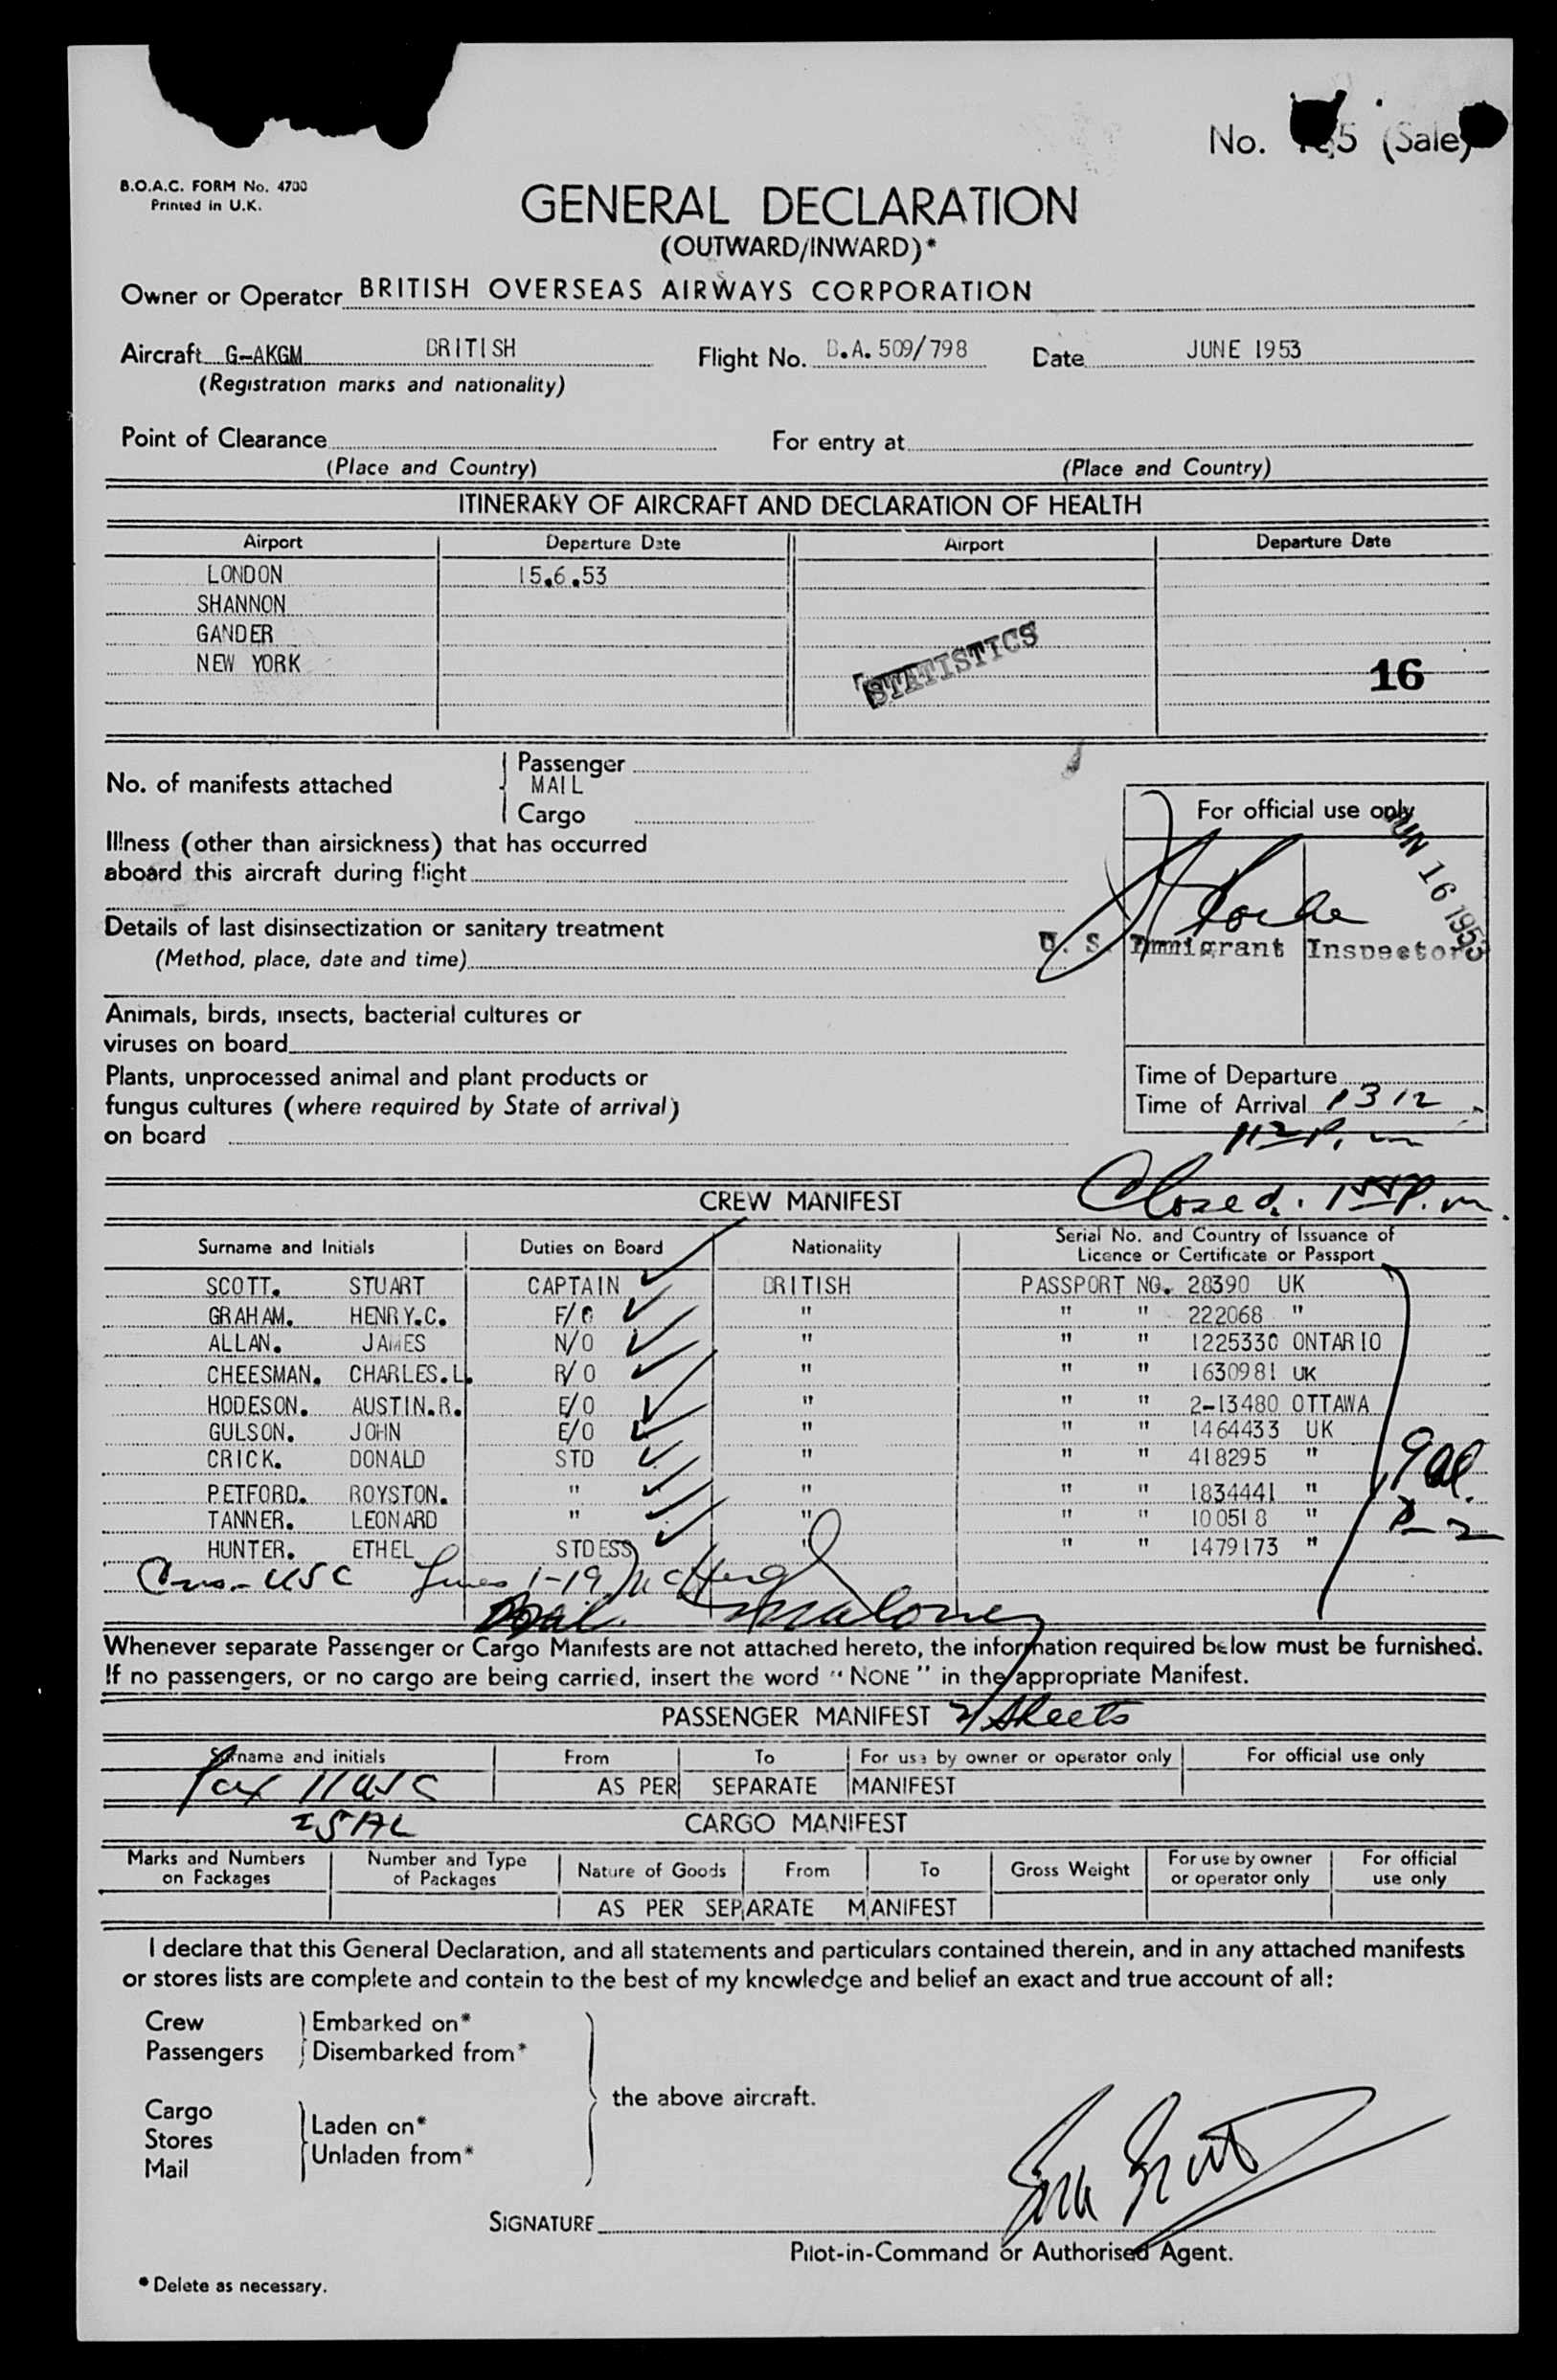 No. 5 (Sale)
B.O.A.C. FORM No. 4700
Printed in U.K.
GENERAL DECLARATION
(OUTWARD/INWARD)*
Owner or Operator BRITISH OVERSEAS AIRWAYS CORPORATION
Aircraft G-AKGM BRITISH Flight No. B.A. 509/798 Date JUNE 1953
(Registration marks and nationality)
Point of Clearance For entry at
(Place and Country) (Place and Country)
ITINERARY OF AIRCRAFT AND DECLARATION OF HEALTH
Airport Departure Date Airport Departure Date
LONDON 15.6.53
SHANNON
GANDER
NEW YORK
STATISTICS
16
No. of manifests attached
Passenger
MAIL
Cargo
Illness (other than airsickness) that has occurred
aboard this aircraft during flight
Details of last disinsectization or sanitary treatment
(Method, place, date and time)
Animals, birds, insects, bacterial cultures or
viruses on board
Plants, unprocessed animal and plant products or
fungus cultures (where required by State of arrival)
on board
For official use only
JUN 16 1953
U. S. Immigrant Inspector
Time of Departure
Time of Arrival 1312
112 P.m
Closed. 155 P.m.
CREW MANIFEST
Surname and Initials Duties on Board Nationality Serial No. and Country of Issuance of
Licence or Certificate or Passport
SCOTT. STUART CAPTAIN BRITISH PASSPORT NO. 28390 UK
GRAHAM. HENRY.C. F/O " " " 222068 "
ALLAN. JAMES N/O " " " 1225330 ONTARIO
CHEESMAN. CHARLES.L. R/O " " " 1630981 UK
HODESON. AUSTIN.R. E/O " " " 2-13480 OTTAWA
GULSON. JOHN E/O " " " 1464433 UK
CRICK. DONALD STD " " " 418295 "
PETFORD. ROYSTON. " " " " 1834441 "
TANNER. LEONARD " " " " 100518 "
HUNTER. ETHEL STDESS " " " 1479173 "
USC Lines 1-19
Whenever separate Passenger or Cargo Manifests are not attached hereto, the information required below must be furnished.
If no passengers, or no cargo are being carried, insert the word "NONE" in the appropriate Manifest.
PASSENGER MANIFEST 2 Sheets
Surname and initials From To For use by owner or operator only For official use only
Pax 11 USC AS PER SEPARATE MANIFEST
25 AL
CARGO MANIFEST
Marks and Numbers on Packages Number and Type of Packages Nature of Goods From To Gross Weight For use by owner or operator only For official use only
AS PER SEPARATE MANIFEST
I declare that this General Declaration, and all statements and particulars contained therein, and in any attached manifests
or stores lists are complete and contain to the best of my knowledge and belief an exact and true account of all:
Crew Embarked on*
Passengers Disembarked from*
the above aircraft.
Cargo
Laden on*
Stores
Unladen from*
Mail
SIGNATURE
Pilot-in-Command or Authorised Agent.
* Delete as necessary.